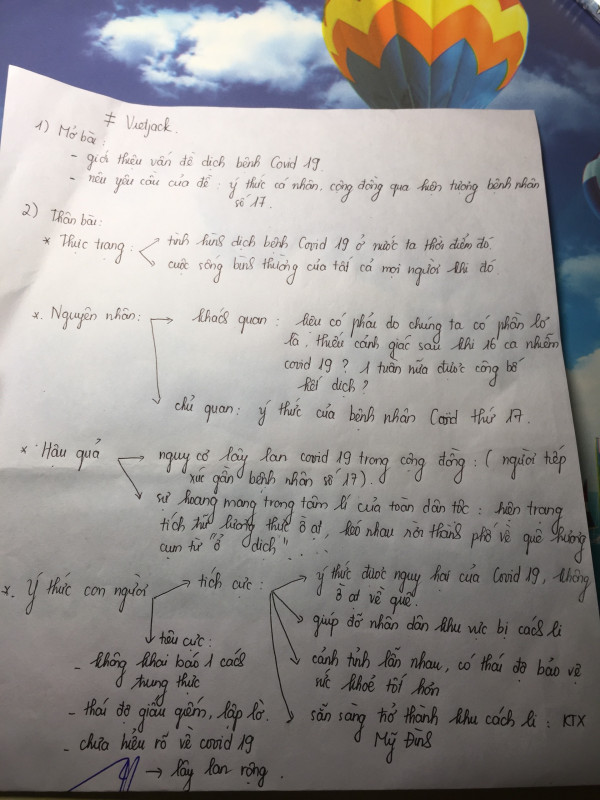 # Vietjack.
1) Mở bài:
- giới thiệu vấn đề dịch bệnh Covid 19.
- nêu yêu cầu của đề: ý thức cá nhân, cộng đồng qua hiện tượng bệnh nhân
số 17.
2) Thân bài:
* Thực trạng: tình hình dịch bệnh Covid 19 ở nước ta thời điểm đó.
cuộc sống bình thường của tất cả mọi người khi đó.
x. Nguyên nhân: khách quan: liệu có phải do chúng ta có phần lơ
là, thiếu cảnh giác sau khi 16 ca nhiễm
covid 19? 1 tuần nữa được công bố
hết dịch?
chủ quan: ý thức của bệnh nhân Covid thứ 17.
* Hậu quả nguy cơ lây lan covid 19 trong cộng đồng: (người tiếp
xúc gần bệnh nhân số 17).
sự hoang mang trong tâm lí của toàn dân tộc: hiện trạng
tích trữ lương thực ồ ạt, kéo nhau rời thành phố về quê hương
cụm từ "ổ dịch"....
x. Ý thức con người tích cực: ý thức được nguy hại của Covid 19, không
ồ ạt về quê.
giúp đỡ nhân dân khu vực bị cách li
cảnh tỉnh lẫn nhau, có thái độ bảo vệ
sức khoẻ tốt hơn
sẵn sàng trở thành khu cách li: KTX
Mỹ Đình
tiêu cực:
- không khai báo 1 cách
trung thực
- thái độ giấu giếm, lấp lờ.
- chưa hiểu rõ về covid 19
→ lây lan rộng.